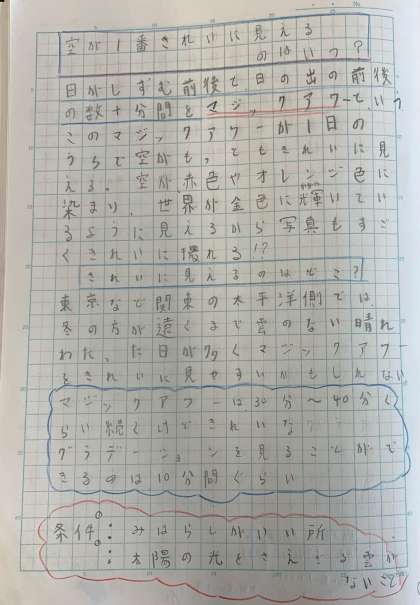 空が1番きれいに見える
のはいつ？
日がしずむ前後で、日の出の前後
の数十分間をマジックアワーで、いう
このマジックアワーが1日の
うちで空がもってもきれいに見
える。空が、赤色やオレンジ色に
染まり、世界が金色に輝いてい
るように見えるから写真もすご
くきれいに撮れる!?
きれいに見えるのはどこ？
東京など関東の太平洋側では
冬の方が遠くまで雲のない晴れ
わたった日が多くマジックアワー
をきれいに見やすいかもしれない
マジックアワーは30分〜40分く
らい続くけどきれいな
グラデーションを見ることがで
きるのは10分間ぐらい
条件：みはらしがいい所
：太陽の光をさえぎる雲が
ないこと